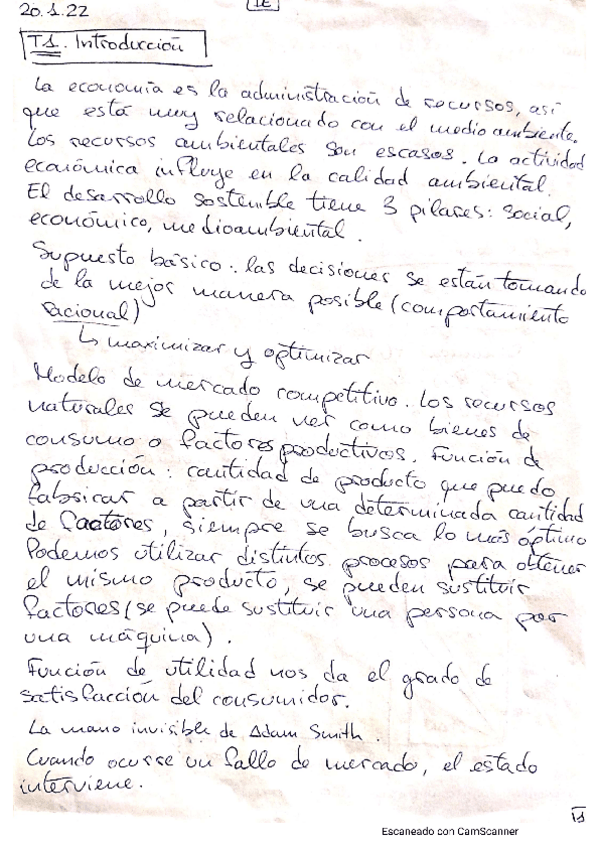 20.1.22
IE
T1. Introducción
La economía es la administración de recursos, así
que está muy relacionado con el medio ambiente.
Los recursos ambientales son escasos. La actividad
económica influye en la calidad ambiental.
El desarrollo sostenible tiene 3 pilares: social,
económico, medioambiental.
Supuesto básico: las decisiones se están tomando
de la mejor manera posible (comportamiento
racional)
↳ maximizar y optimizar
Modelo de mercado competitivo. Los recursos
naturales se pueden ver como bienes de
consumo o factores productivos. Función de
producción: cantidad de producto que puedo
fabricar a partir de una determinada cantidad
de factores, siempre se busca lo más óptimo
Podemos utilizar distintos procesos para obtener
el mismo producto, se pueden sustituir
factores (se puede sustituir una persona por
una máquina).
Función de utilidad nos da el grado de
satisfacción del consumidor.
La mano invisible de Adam Smith.
Cuando ocurre un fallo de mercado, el estado
interviene.
Escaneado con CamScanner